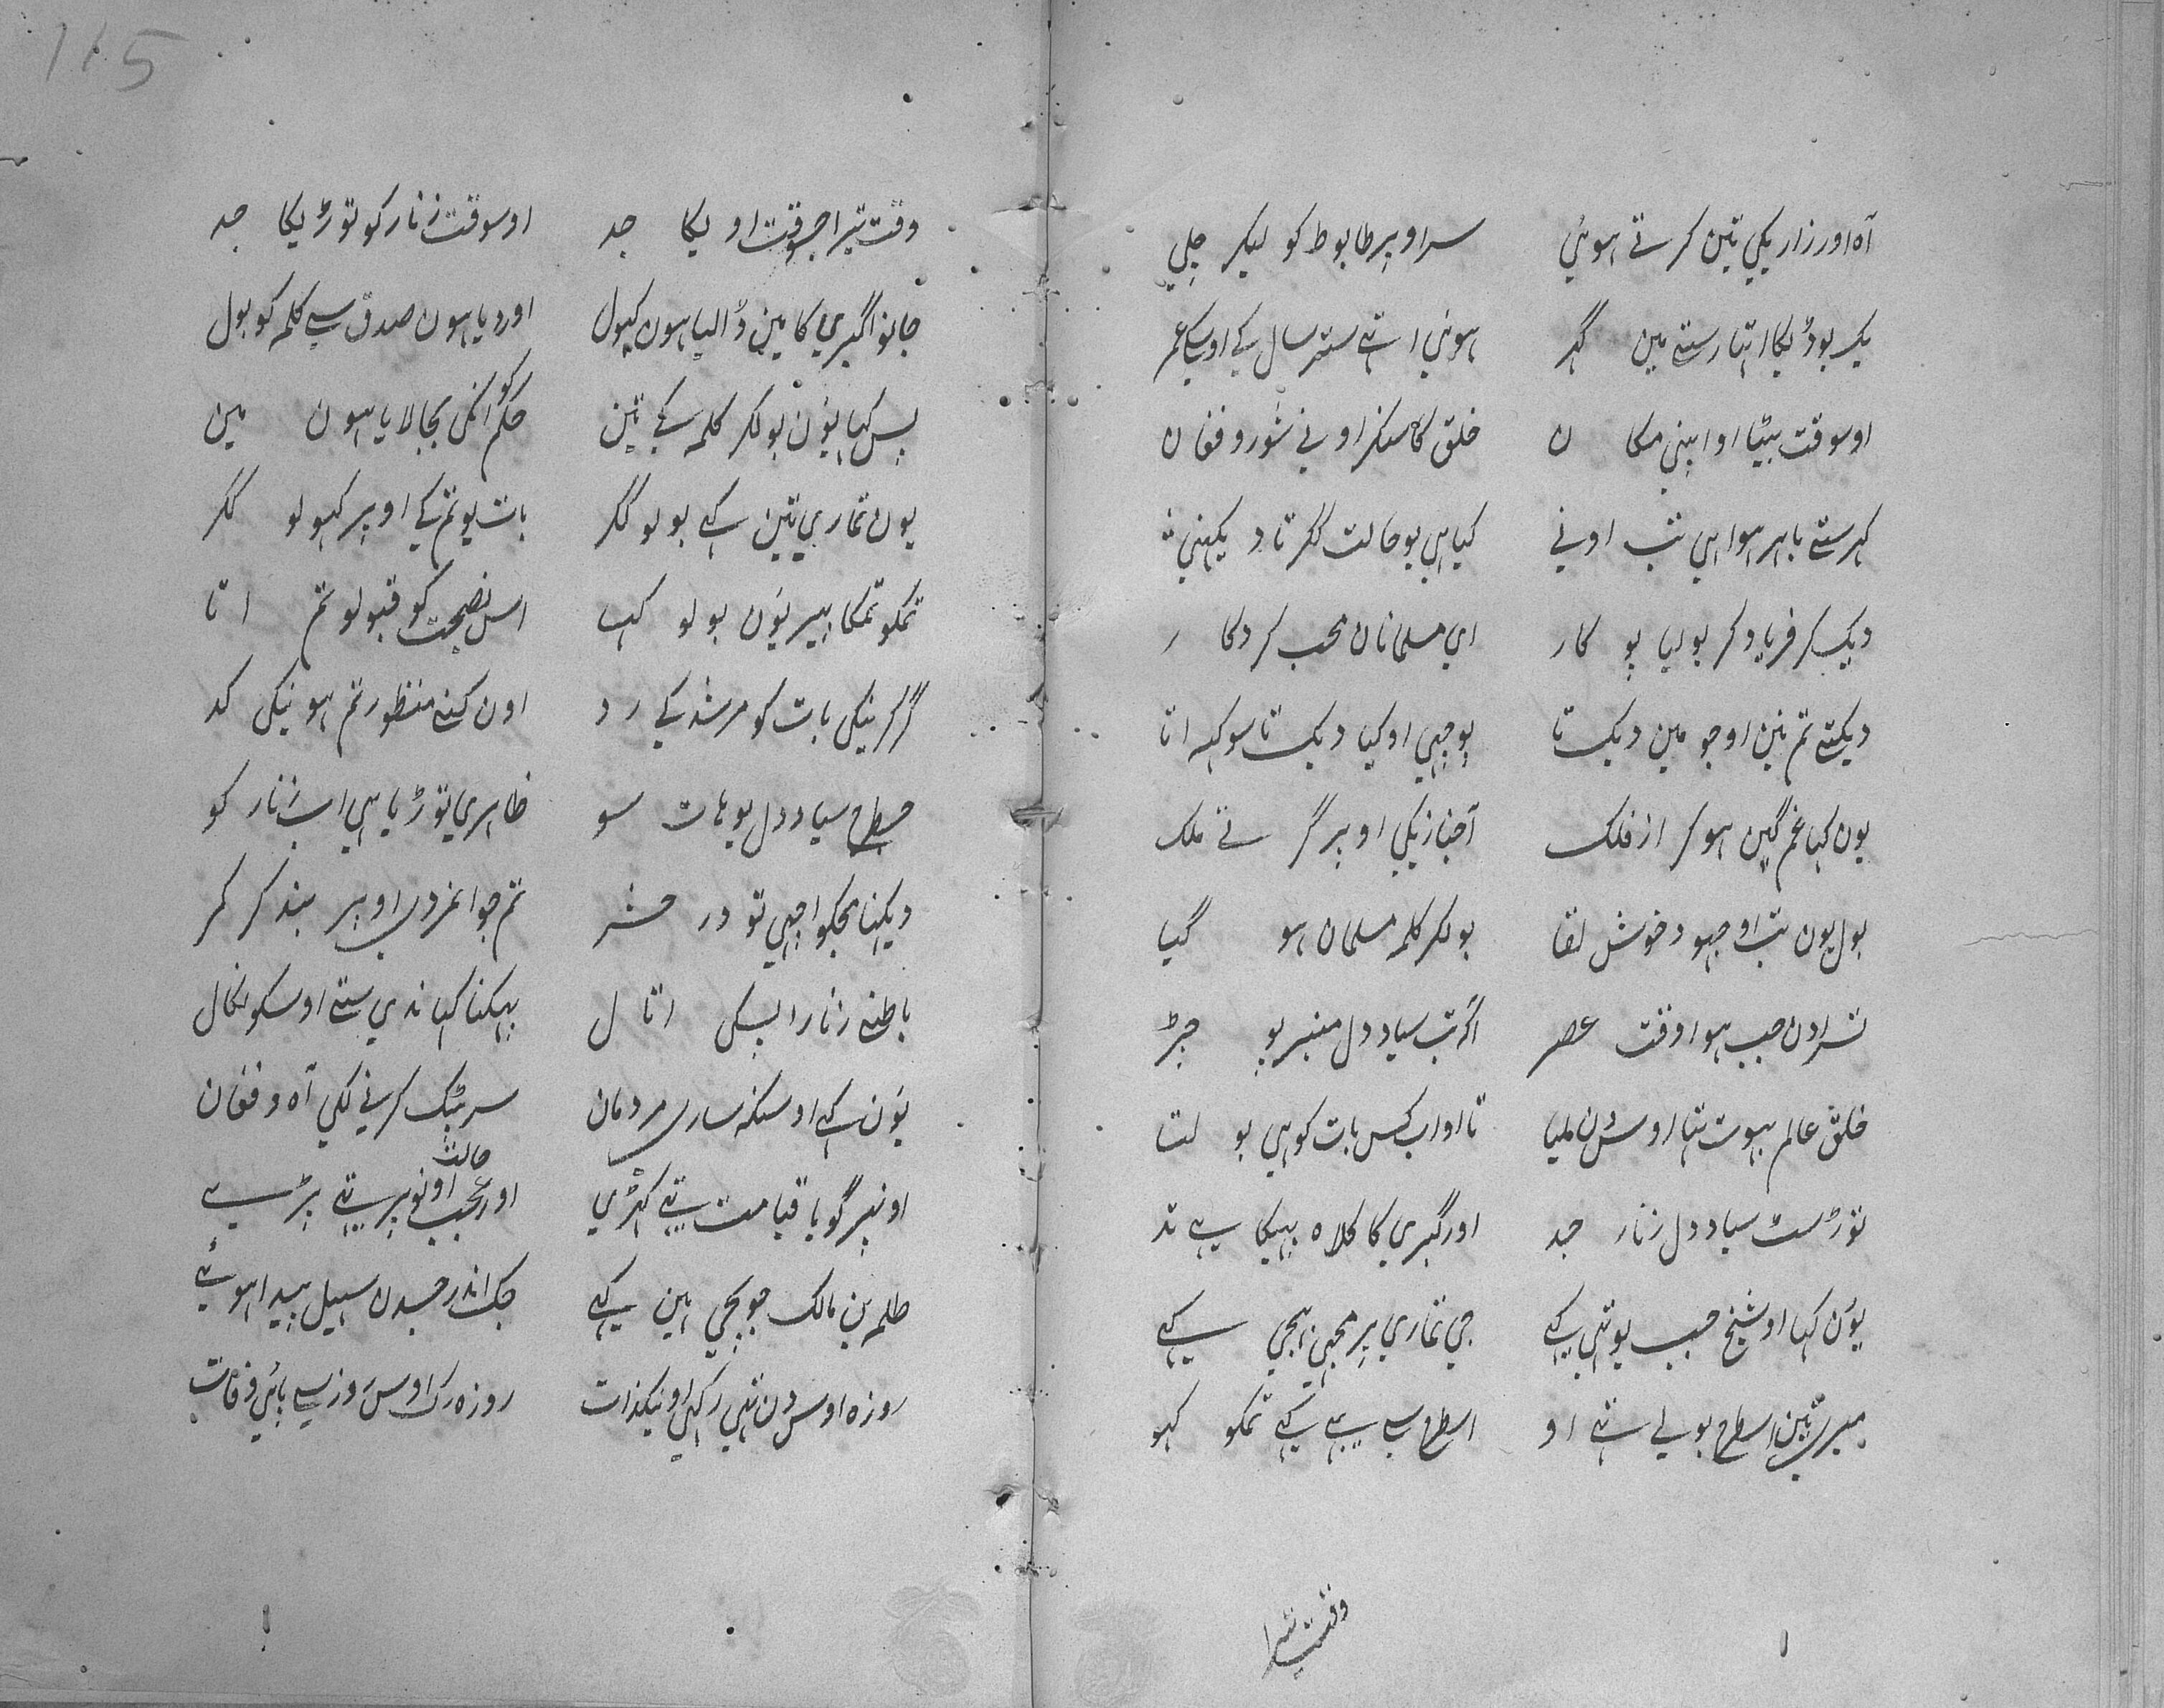 115
آہ اور زاریکی تین کرتے ہوئی سر اوپر طابوط کو لیکر چلی
یک یودیکا اتھا رستے مین گھر ہوئی اتھے ستر سال کے اوسکے عمر
اوسوقت بیٹھا او اپنی مکان خلق کا سنکر اونے شور و فغان
گھر ستے باہر ہوا ہی تب اونے کیا ہی یو حالت ککر تا دیکھنی
دیک کر فریاد کر بولیا پوکار ای مسلمانان محب کردکار
دیکتے تم نین او جو مین دیکتا پوچھی او کیا دیکتا سو کہہ اتا
یون کہا غم گین ہو کر از فلک جنازیکی اوپر گرتے ملک
بول یون تب او جہود خوش لقا بولکر کلمہ مسلمان ہو گیا
تسرا دن جب ہوا وقت عصر اکر تب سیاد دل منبر پو چڑ
خلق عالم بہوت تھا اوس تا او اب کس بات کو ہی بولتا
توڑ سٹ سیاد دل زنار جد اور گبری کا کلاہ پہیکا ہے تد
یون کہا او شیخ حبیب یو تہی کہے جی تماری پر مجھی بھیجی کہے
میری تین اسطرح بولے اتھے او اسطرح سے کہے تمکو کہو
وقت تیرا
وقت تیرا جسوقت اویکا جد اوسوقت زنار کو توڑیکا جد
جانو اگبری کا مین ڈالیا ہون کھول اور دیا ہون صدق سے کلمہ کو بول
پس کہا یون بولکر کلمہ کے تین حکم کو انکی بجا لایا ہون مین
یون تماری تین کہے بولو ککر بات یو تم کے اوپر کھولو ککر
تمکو تمکا پیر یون بولو کہا اس نصیحت کو قبولو تم اتا
گر کرینگی بات کو مرشد کے رد اون کنے منظور تم ہونیکی کد
جسطرح سیاد دل یو ہات سو ظاہری توڑیا ہی اب زنار کو
دیکھنا مجکو اچھی تو در حشر تم جوانمردی اوپر بند کر کمر
باطنی زنار اپسکی اتال پہیکنا کہاندی ستے اوسکو نکال
یون کہے اوسکہ ساری مردمان سر پٹک کرنے لکی آہ و فغان
اونپر گویا قیامت تھے کھڑی اور عجب حالت اونوپر تھے پڑے
ظلم بن مالک جو بچی ہین کہے جک اندر جسدن سہیل پیدا ہوئے
روزہ اوس دن تھی رکھی او نیکذات روزہ رک اوس روز سے پائی وفات